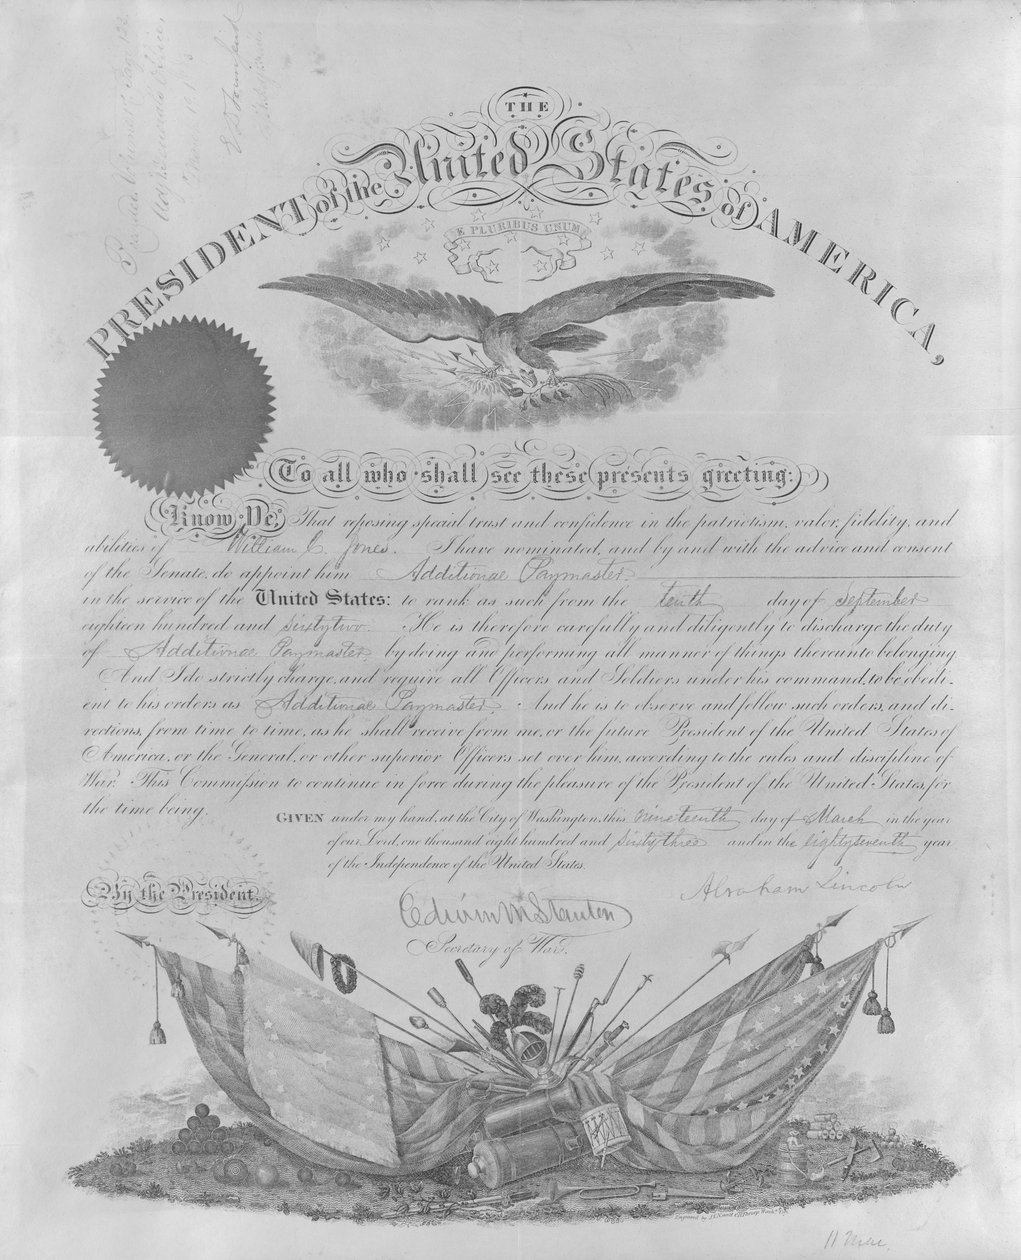 THE
PRESIDENT of the United States of AMERICA,
E PLURIBUS UNUM
To all who shall see these presents greeting:
Know Ye, That reposing special trust and confidence in the patriotism, valor, fidelity, and
abilities of William C. Jones. I have nominated, and by and with the advice and consent
of the Senate, do appoint him Additional Paymaster.
in the service of the United States: to rank as such from the tenth day of September
eighteen hundred and sixtytwo. He is therefore carefully and diligently to discharge the duty
of Additional Paymaster, by doing and performing all manner of things thereunto belonging.
And I do strictly charge, and require all Officers and Soldiers under his command, to be obedi-
ent to his orders as Additional Paymaster. And he is to observe and follow such orders, and di-
rections, from time to time, as he shall receive from me, or the future President of the United States of
America, or the General, or other superior Officers set over him, according to the rules and discipline of
War. This Commission to continue in force during the pleasure of the President of the United States, for
the time being.
GIVEN under my hand, at the City of Washington, this nineteenth day of March in the year
of our Lord, one thousand eight hundred and sixtythree and in the eightyseventh year
of the Independence of the United States.
By the President,
Abraham Lincoln
Edwin M Stanton
Secretary of War.